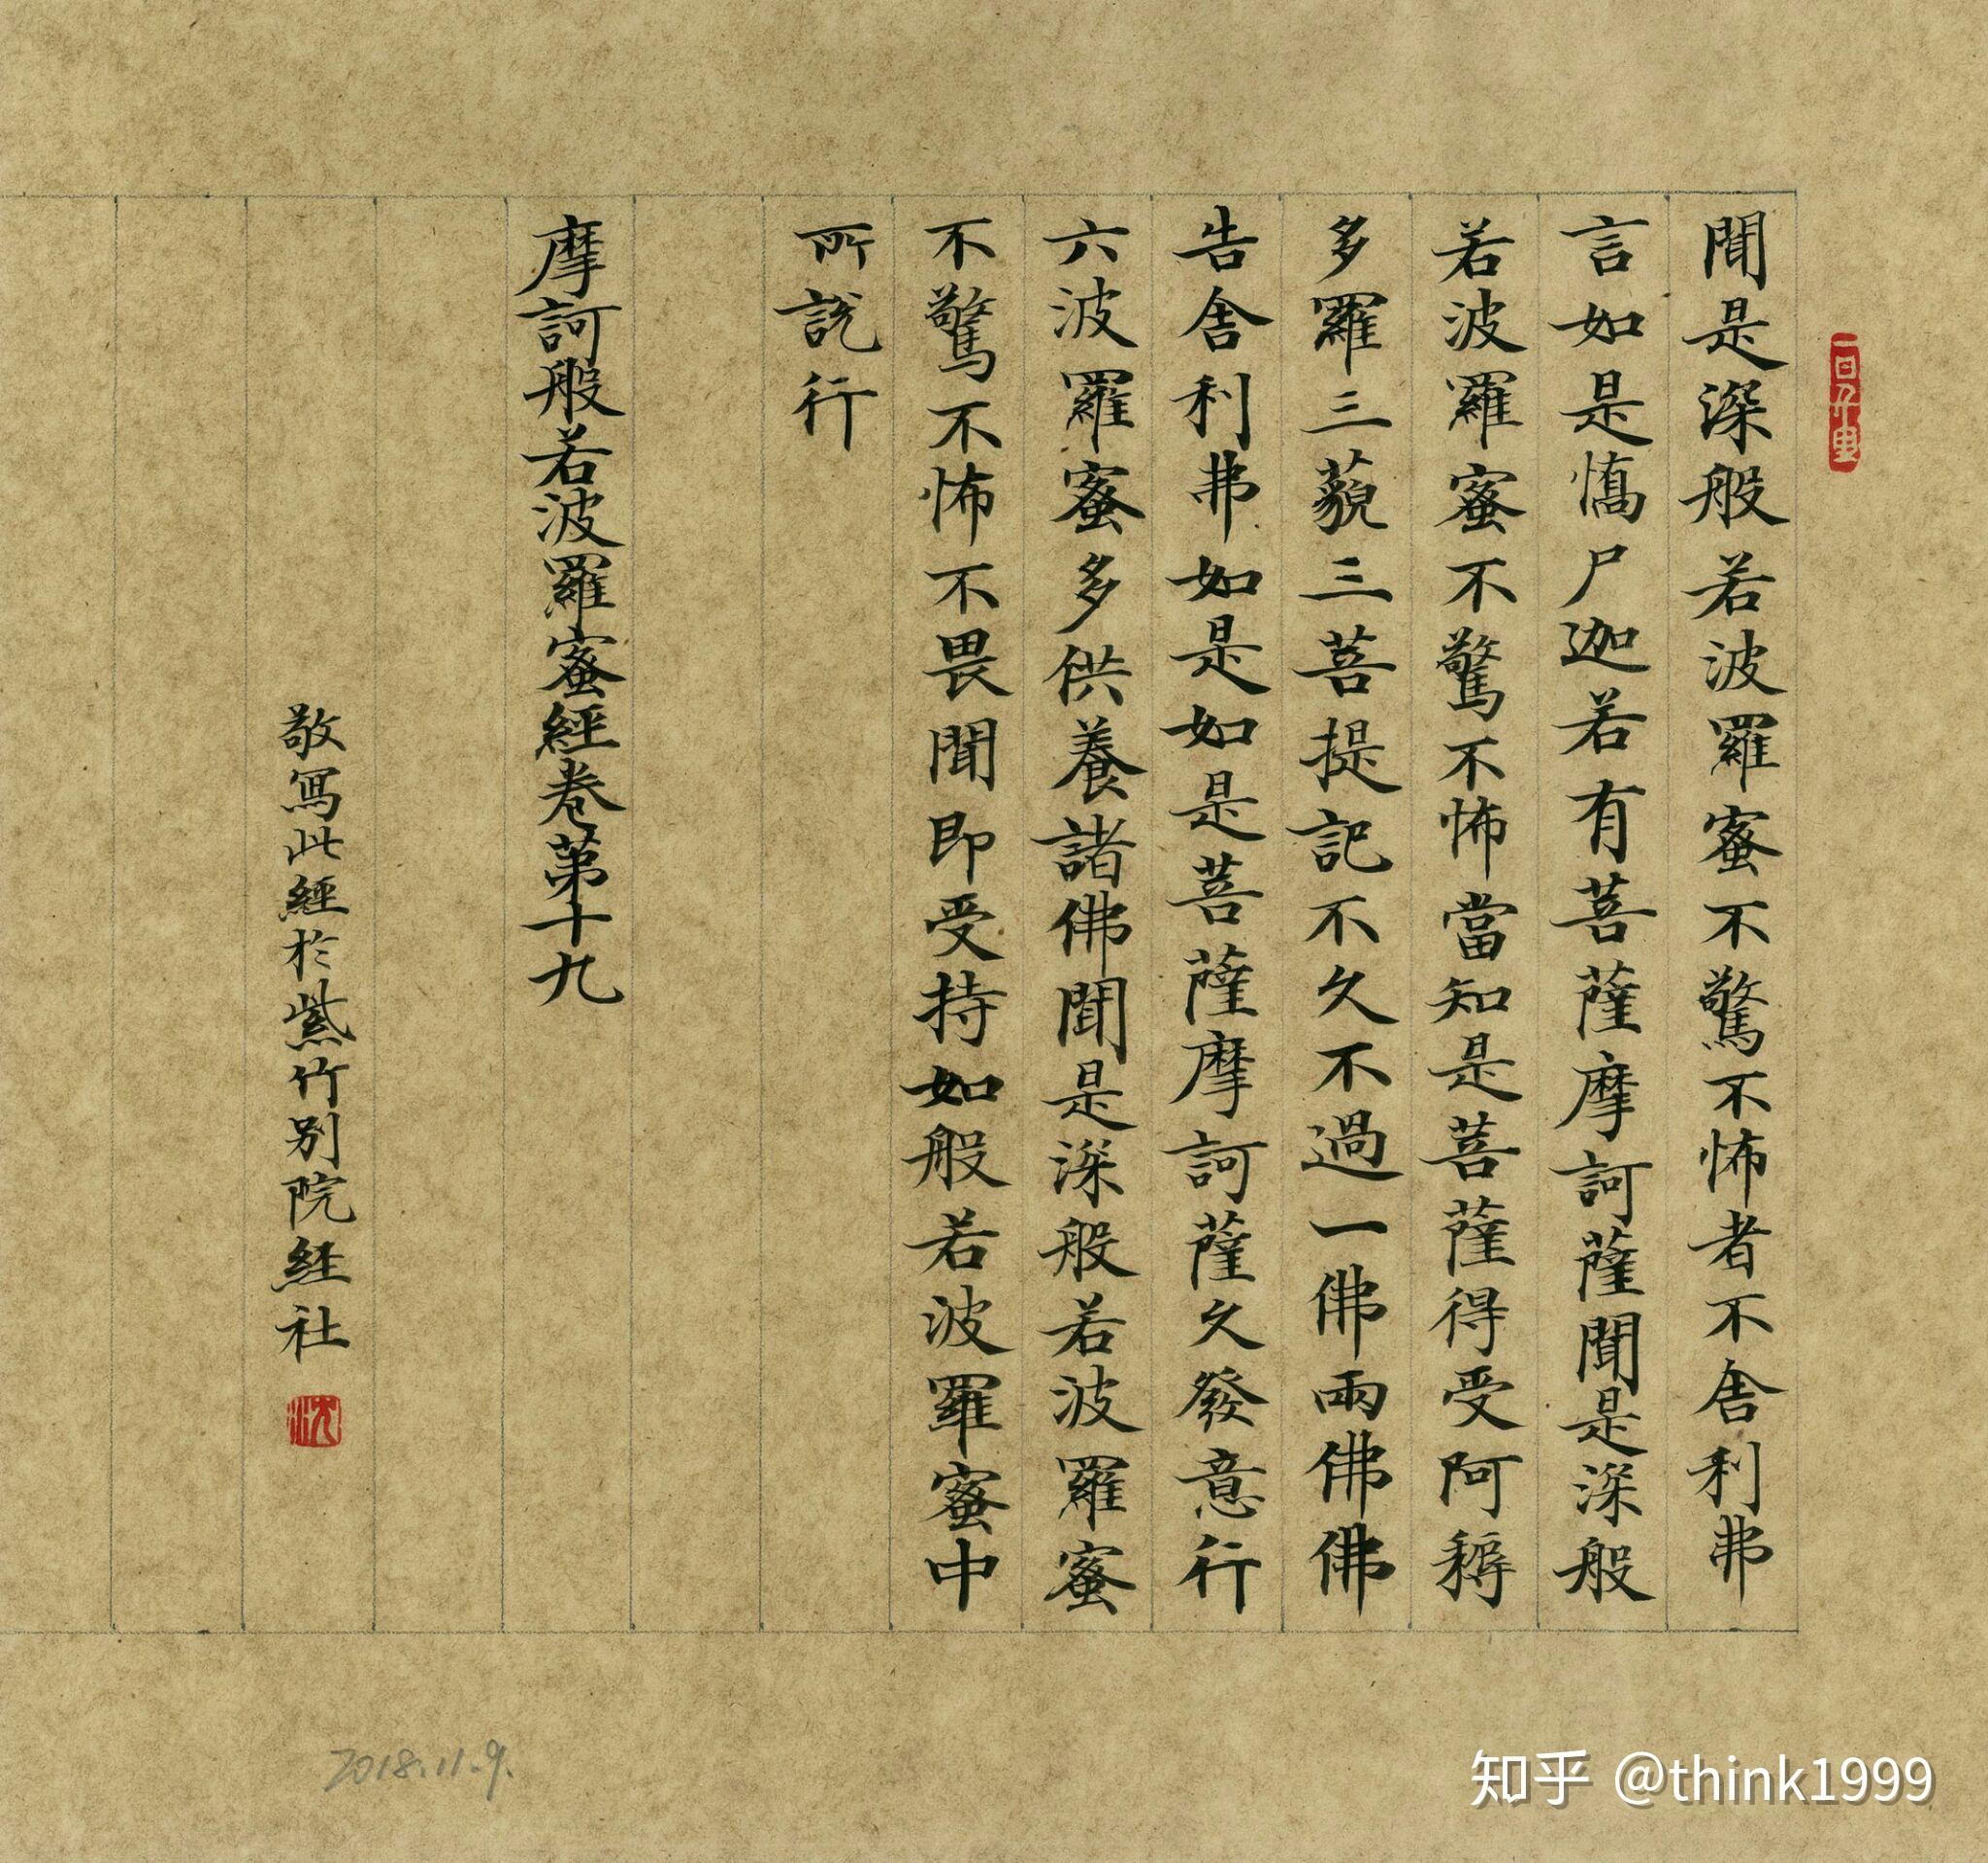 聞是深般若波羅蜜不驚不怖者不舍利弗
言如是憍尸迦若有菩薩摩訶薩聞是深般
若波羅蜜不驚不怖當知是菩薩得受阿耨
多羅三藐三菩提記不久不過一佛兩佛佛
告舍利弗如是如是菩薩摩訶薩久發意行
六波羅蜜多供養諸佛聞是深般若波羅蜜
不驚不怖不畏聞即受持如般若波羅蜜中
所說行
摩訶般若波羅蜜經卷第十九
敬寫此經於紫竹別院經社
沈
2018.11.9.
知乎 @think1999